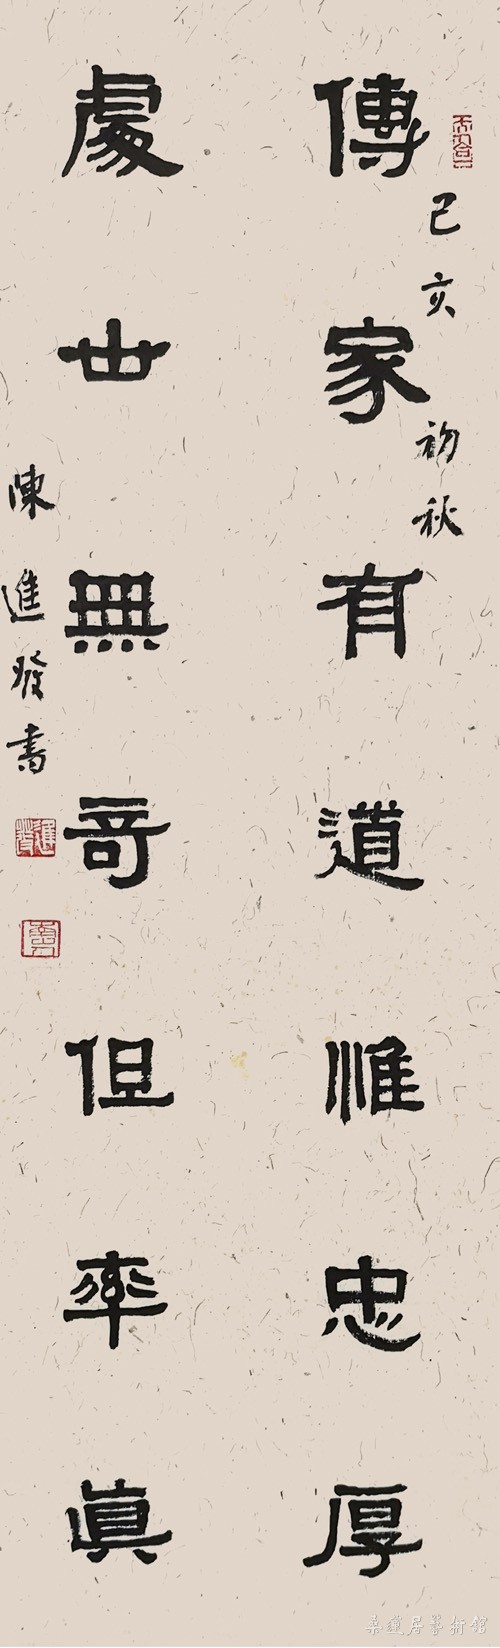 己亥初秋
傳家有道惟忠厚
處世無奇但率真
陳進發書